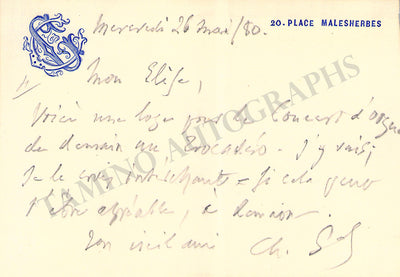 Mercredi 26 Mai/80.
20. PLACE MALESHERBES
Mon Elise,
Voici une loge pour le Concert d'orgue
de demain au Trocadéro. J'y vais;
je le crois intéressant. Si cela peut
t'être agréable, à demain.
Ton vieil ami Ch. G
TAMINO AUTOGRAPHS